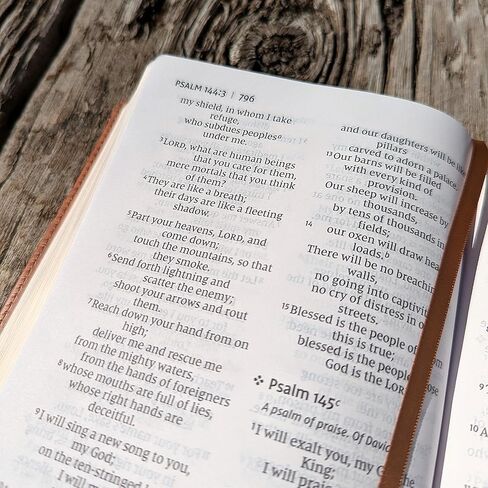 PSALM 144:3 | 796
my shield, in whom I take
refuge,
who subdues peoplesᵃ
under me.
³LORD, what are human beings
that you care for them,
mere mortals that you think
of them?
⁴They are like a breath;
their days are like a fleeting
shadow.
⁵Part your heavens, LORD, and
come down;
touch the mountains, so that
they smoke.
⁶Send forth lightning and
scatter the enemy;
shoot your arrows and rout
them.
⁷Reach down your hand from on
high;
deliver me and rescue me
from the mighty waters,
from the hands of foreigners
⁸whose mouths are full of lies,
whose right hands are
deceitful.
⁹I will sing a new song to you,
my God;
on the ten-stringed
I will
and our daughters will be
pillars
carved to adorn a palace.
¹³Our barns will be filled
with every kind of
provision.
Our sheep will increase by
thousands,
by tens of thousands in
fields;
¹⁴
our oxen will draw
loads.ᵇ
There will be no breaching
walls,
no going into
no cry of distress in
streets.
¹⁵Blessed is the people of
this is true;
blessed is the people
God is the LORD
Psalm 145ᶜ
A psalm of praise. Of David
¹I will exalt you, my
King;
I will
10